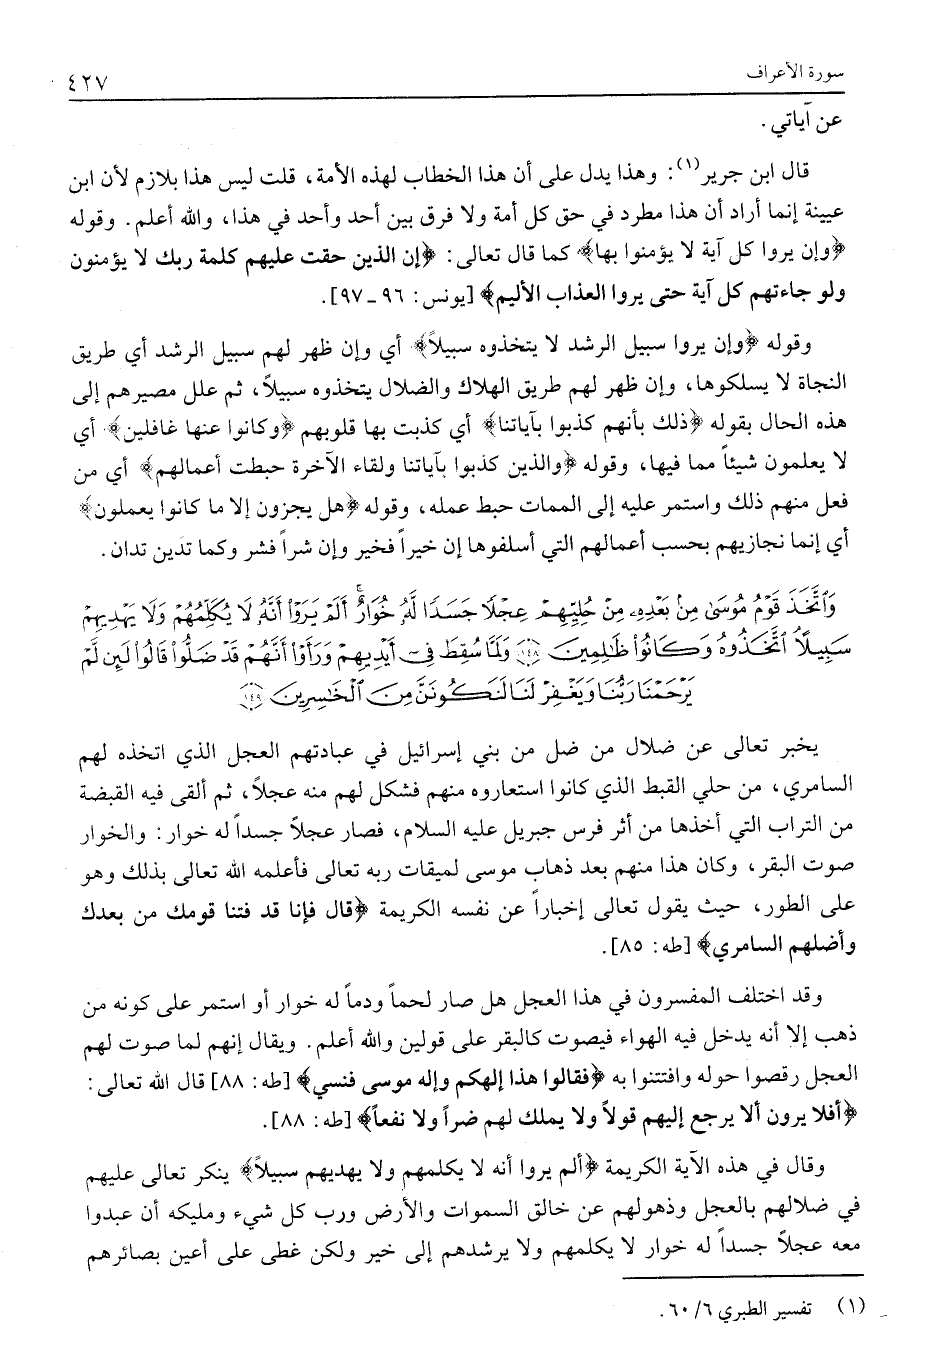 سورة الأعراف ٤٢٧
عن آياتي.
قال ابن جرير(١): وهذا يدل على أن هذا الخطاب لهذه الأمة، قلت ليس هذا بلازم لأن ابن
عيينة إنما أراد أن هذا مطرد في حق كل أمة ولا فرق بين أحد وأحد في هذا، والله أعلم. وقوله
﴿وإن يروا كل آية لا يؤمنوا بها﴾ كما قال تعالى: ﴿إن الذين حقت عليهم كلمة ربك لا يؤمنون
ولو جاءتهم كل آية حتى يروا العذاب الأليم﴾ [يونس: ٩٦ ـ ٩٧].
وقوله ﴿وإن يروا سبيل الرشد لا يتخذوه سبيلاً﴾ أي وإن ظهر لهم سبيل الرشد أي طريق
النجاة لا يسلكوها، وإن ظهر لهم طريق الهلاك والضلال يتخذوه سبيلاً، ثم علل مصيرهم إلى
هذه الحال بقوله ﴿ذلك بأنهم كذبوا بآياتنا﴾ أي كذبت بها قلوبهم ﴿وكانوا عنها غافلين﴾ أي
لا يعلمون شيئاً مما فيها، وقوله ﴿والذين كذبوا بآياتنا ولقاء الآخرة حبطت أعمالهم﴾ أي من
فعل منهم ذلك واستمر عليه إلى الممات حبط عمله، وقوله ﴿هل يجزون إلا ما كانوا يعملون﴾
أي إنما نجازيهم بحسب أعمالهم التي أسلفوها إن خيراً فخير وإن شراً فشر وكما تدين تدان.
وَٱتَّخَذَ قَوْمُ مُوسَىٰ مِنۢ بَعْدِهِۦ مِنْ حُلِيِّهِمْ عِجْلًا جَسَدًا لَّهُۥ خُوَارٌ ۚ أَلَمْ يَرَوْا۟ أَنَّهُۥ لَا يُكَلِّمُهُمْ وَلَا يَهْدِيهِمْ
سَبِيلًا ٱتَّخَذُوهُ وَكَانُوا۟ ظَٰلِمِينَ ﴿١٤٨﴾ وَلَمَّا سُقِطَ فِىٓ أَيْدِيهِمْ وَرَأَوْا۟ أَنَّهُمْ قَدْ ضَلُّوا۟ قَالُوا۟ لَئِن لَّمْ
يَرْحَمْنَا رَبُّنَا وَيَغْفِرْ لَنَا لَنَكُونَنَّ مِنَ ٱلْخَٰسِرِينَ ﴿١٤٩﴾
يخبر تعالى عن ضلال من ضل من بني إسرائيل في عبادتهم العجل الذي اتخذه لهم
السامري، من حلي القبط الذي كانوا استعاروه منهم فشكل لهم منه عجلاً، ثم ألقى فيه القبضة
من التراب التي أخذها من أثر فرس جبريل عليه السلام، فصار عجلاً جسداً له خوار: والخوار
صوت البقر، وكان هذا منهم بعد ذهاب موسى لميقات ربه تعالى فأعلمه الله تعالى بذلك وهو
على الطور، حيث يقول تعالى إخباراً عن نفسه الكريمة ﴿قال فإنا قد فتنا قومك من بعدك
وأضلهم السامري﴾ [طه: ٨٥].
وقد اختلف المفسرون في هذا العجل هل صار لحماً ودماً له خوار أو استمر على كونه من
ذهب إلا أنه يدخل فيه الهواء فيصوت كالبقر على قولين والله أعلم. ويقال إنهم لما صوت لهم
العجل رقصوا حوله وافتتنوا به ﴿فقالوا هذا إلهكم وإله موسى فنسي﴾ [طه: ٨٨] قال الله تعالى:
﴿أفلا يرون ألا يرجع إليهم قولاً ولا يملك لهم ضراً ولا نفعاً﴾ [طه: ٨٨].
وقال في هذه الآية الكريمة ﴿ألم يروا أنه لا يكلمهم ولا يهديهم سبيلاً﴾ ينكر تعالى عليهم
في ضلالهم بالعجل وذهولهم عن خالق السموات والأرض ورب كل شيء ومليكه أن عبدوا
معه عجلاً جسداً له خوار لا يكلمهم ولا يرشدهم إلى خير ولكن غطى على أعين بصائرهم
(١) تفسير الطبري ٦/ ٦٠.